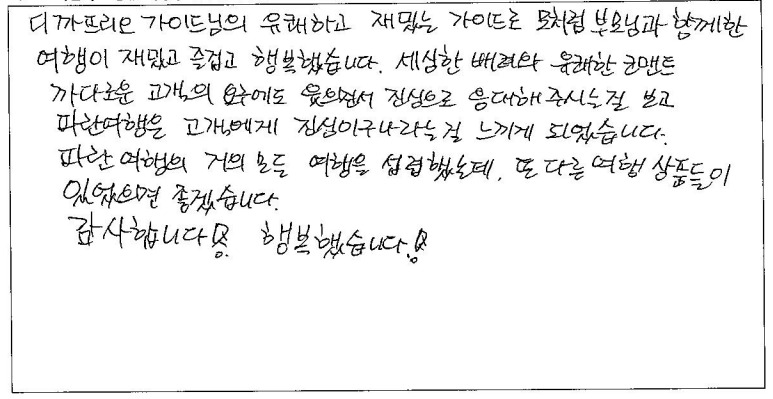 디까프리오 가이드님의 유쾌하고 재밌는 가이드로 모처럼 부모님과 함께한
여행이 재밌고 즐겁고 행복했습니다. 세심한 배려와 유쾌한 코맨트
까다로운 고객님의 요구에도 웃으면서 진심으로 응대해주시는걸 보고
파란여행은 고객에게 진심이구나라는걸 느끼게 되었습니다.
파란여행의 거의 모든 여행을 섭렵했는데, 또 다른 여행 상품들이
있었으면 좋겠습니다.
감사합니다! 행복했습니다!